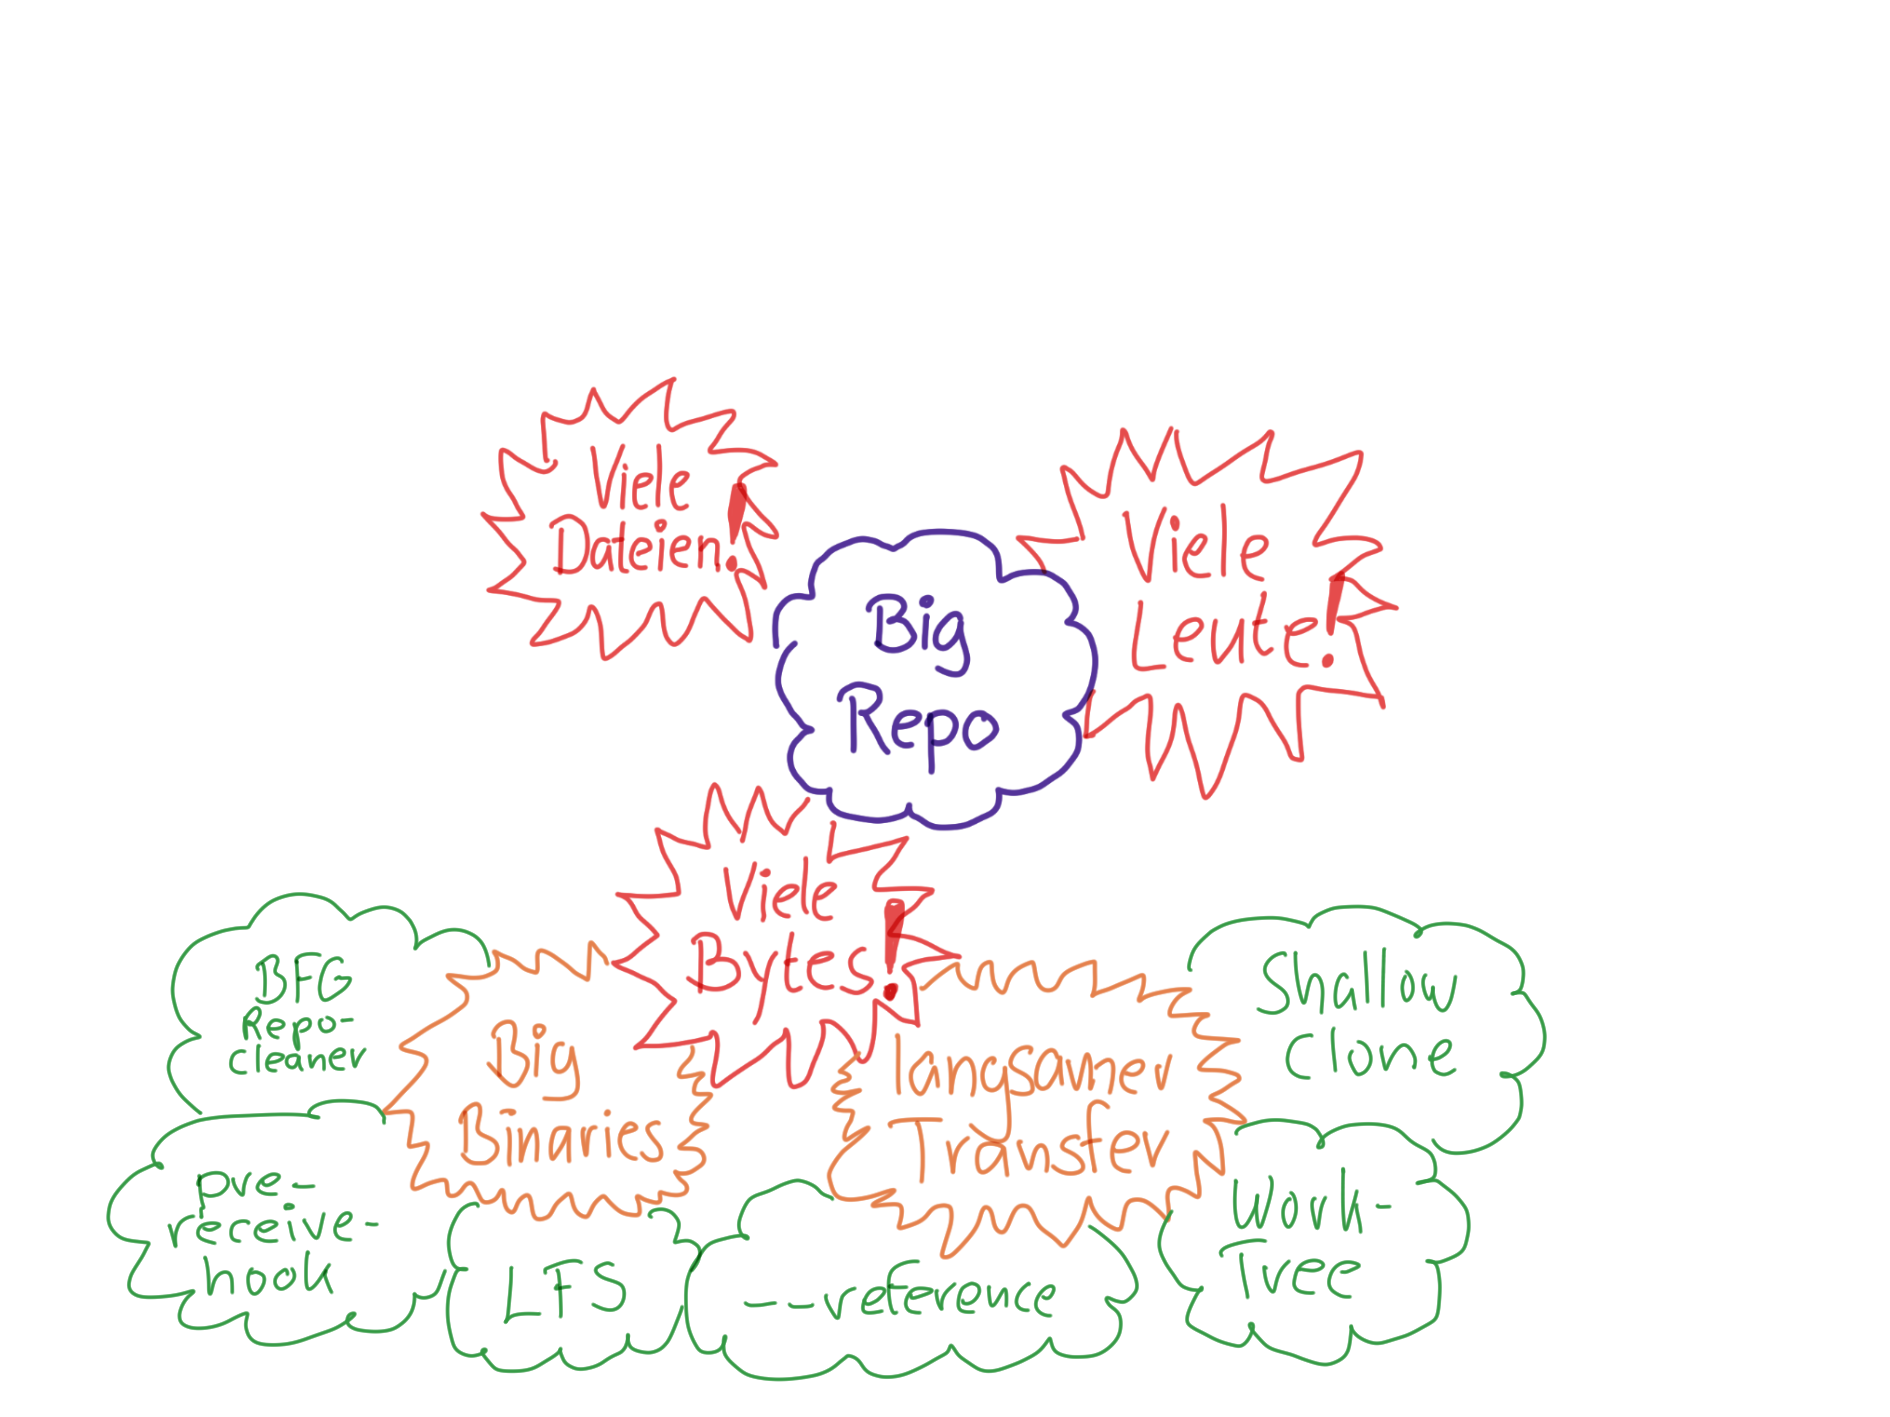 Viele
Dateien!
Viele
Leute!
Big
Repo
Viele
Bytes!
BFG
Repo-
cleaner
Big
Binaries
langsamer
Transfer
Shallow
clone
pre-
receive-
hook
LFS
--reference
Work-
Tree